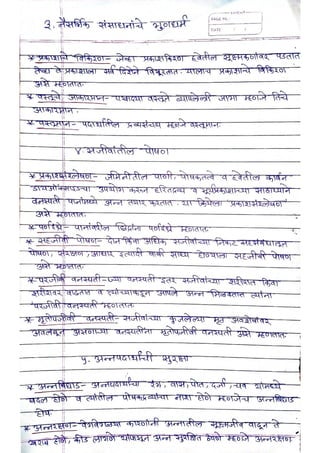 ३. नैसर्गिक संसाधनांचे गुणधर्म
* प्रकाशाचे विकिरण- जेव्हा प्रकाशकिरण हवेतील सूक्ष्मकणांवर पडतात
तेव्हा ते प्रकाशाला सर्व दिशेने विखुरतात यालाच प्रकाशाचे विकिरण
असे म्हणतात.
* वस्तूचे आकारमान- एखाद्या वस्तूने व्यापलेली जागा म्हणजे तिचे
आकारमान.
* वस्तुमान- पदार्थातील द्रव्यसंचय म्हणजे वस्तुमान.
४. सजीवांतील पोषण
* प्रकाशसंश्लेषण- जमिनीतील पाणी, पोषकतत्वे व हवेतील कार्बन
डायऑक्साइडचा उपयोग करून हरितद्रव्य व सूर्यप्रकाशाच्या साहाय्याने
वनस्पती पानांमध्ये अन्न तयार करतात. या क्रियेला प्रकाशसंश्लेषण
असे म्हणतात.
* पर्णछिद्रे- पानांवरील छिद्रांना पर्णछिद्रे म्हणतात.
* सहजीवी पोषण- दोन किंवा अधिक सजीवांच्या निकट सहसंबंधातून
पोषण, संरक्षण, आधार इत्यादी बाबी साध्य होण्याला सहजीवी पोषण
असे म्हणतात.
* परजीवी वनस्पती- ज्या वनस्पती इतर सजीवांच्या शरीरात किंवा
शरीरावर वाढतात व त्यांच्याकडून आपले अन्न मिळवतात त्यांना
परजीवी वनस्पती म्हणतात.
* मृतोपजीवी वनस्पती- सजीवांच्या कुजलेल्या मृत अवशेषांवर
अवलंबून असणाऱ्या वनस्पतींना मृतोपजीवी वनस्पती असे म्हणतात.
५. अन्नपदार्थांची सुरक्षा
* अन्नबिघाड- अन्नपदार्थांचा रंग, वास, पोत, दर्जा, चव यांमध्ये
बदल होणे व त्यांतील पोषकद्रव्यांचा नाश होणे म्हणजेच अन्नबिघाड
होय.
* अन्नरक्षण- वेगवेगळ्या कारणांनी अन्नातील सूक्ष्मजीव वाढून ते
खराब होणे, कीड लागणे यांपासून अन्न सुरक्षित ठेवणे म्हणजे अन्नरक्षण